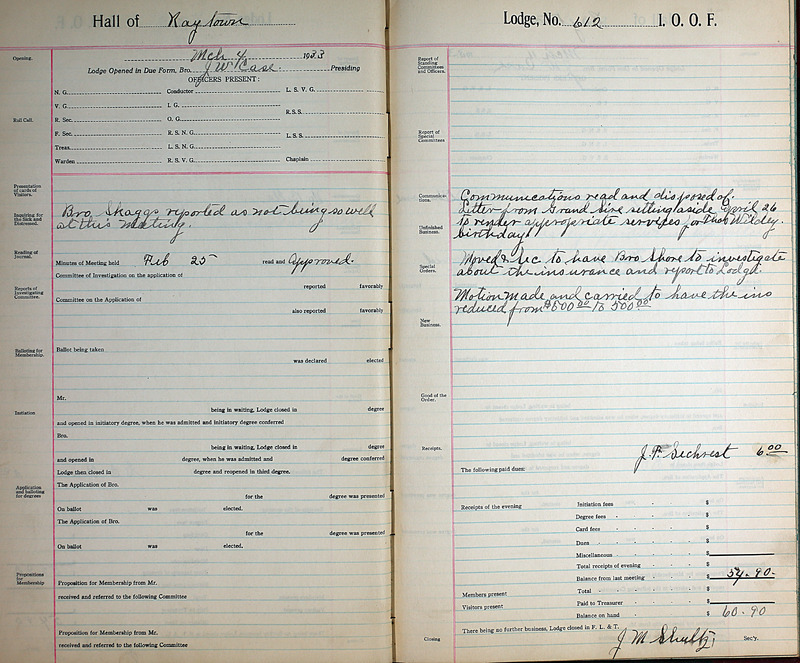 Hall of Raytown
Opening.
Mch 4 1933
Lodge Opened in Due Form, Bro. J W Case. Presiding
OFFICERS PRESENT:
N. G. Conductor L. S. V. G.
V. G. I. G.
R.S.S.
Roll Call.
R. Sec. O. G.
F. Sec. R. S. N. G.
L. S. S.
Treas. L. S. N. G.
Warden R. S. V. G. Chaplain
Presentation of cards of Visitors.
Inquiring for the Sick and Distressed.
Bro. Skaggs reported as not being so well
at this meeting.
Reading of Journal.
Minutes of Meeting held Feb 25 read and Approved.
Committee of Investigation on the application of
reported favorably
Reports of Investigating Committee.
Committee on the Application of
also reported favorably
Balloting for Membership.
Ballot being taken
was declared elected
Mr.
being in waiting, Lodge closed in degree
Initiation
and opened in initiatory degree, when he was admitted and initiatory degree conferred
Bro.
being in waiting, Lodge closed in degree
and opened in degree, when he was admitted and degree conferred
Lodge then closed in degree and reopened in third degree.
Application and balloting for degrees
The Application of Bro.
for the degree was presented
On ballot was elected.
The Application of Bro.
for the degree was presented
On ballot was elected.
Propositions for Membership
Proposition for Membership from Mr.
received and referred to the following Committee
Proposition for Membership from Mr.
received and referred to the following Committee
Lodge, No. 612 I. O. O. F.
Report of Standing Committees and Officers.
Report of Special Committees
Communications.
Communications read and disposed of.
Letter from Grand Sire setting aside April 26
to render appropriate services for Thos Wildey
birthday.
Unfinished Business.
Special Orders.
Moved & Sec to have Bro Shore to investigate
about the insurance and report to Lodge.
Motion made and carried to have the ins
reduced from $600 00 to 500 00
New Business.
Good of the Order.
Receipts.
J. F. Sechrest 6.00
The following paid dues:
Receipts of the evening Initiation fees $
Degree fees $
Card fees $
Dues $
Miscellaneous $
Total receipts of evening $
Balance from last meeting $ 54.90
Members present Total $
Visitors present Paid to Treasurer $
Balance on hand $ 60.90
There being no further business, Lodge closed in F. L. & T.
Closing J M Shultz, Sec'y.